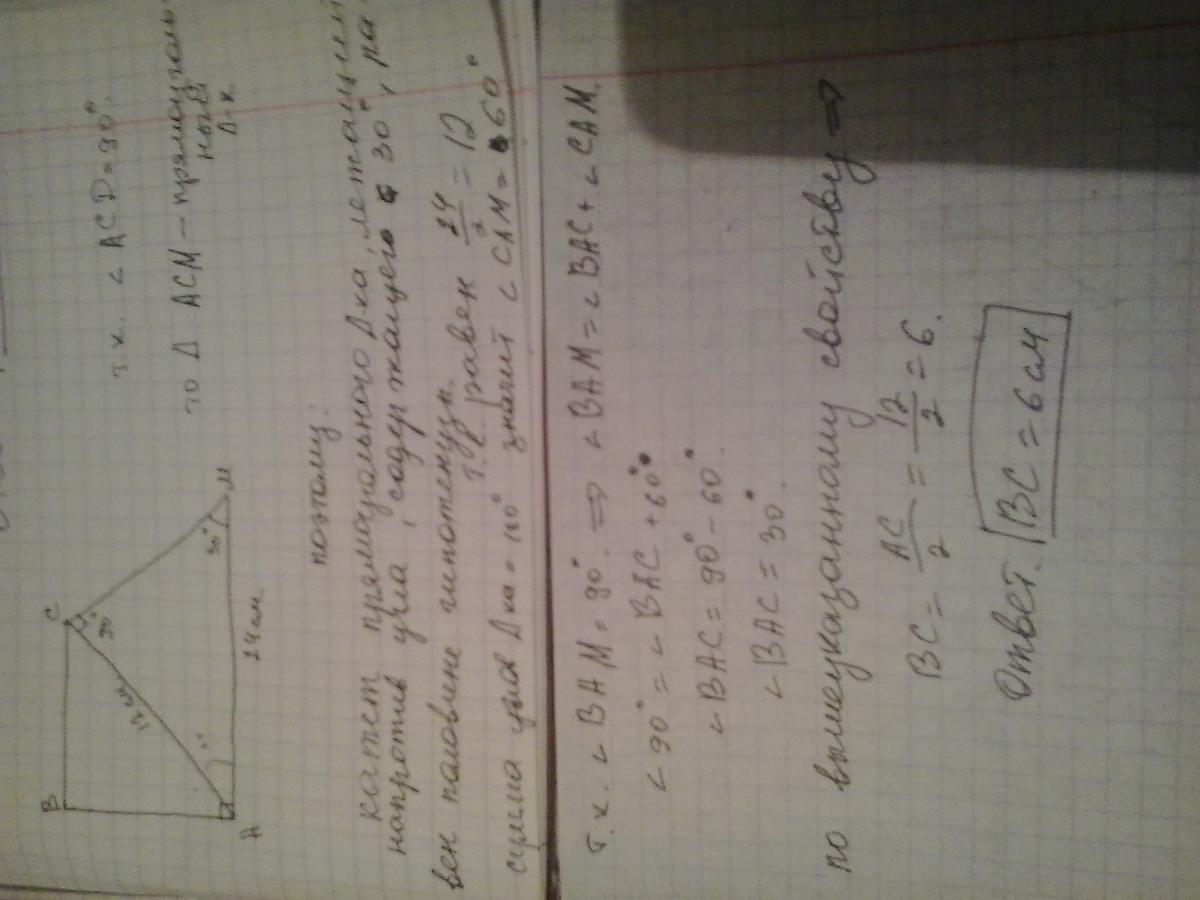 B
C
12 см
90°
30°
M
A
24 см.
т.к. ∠ ACD = 90°.
то Δ ACM – прямоуголь-
ный
Δ-к
поэтому:
катет прямоугольного Δ-ка, лежащий
напротив угла, содержащего 30°, ра-
вен половине гипотенузы.
т.е. равен 24/2 = 12
сумма углов Δ-ка = 180° значит ∠ CAM = 60°
т.к. ∠ BAM = 90° ⇒ ∠ BAM = ∠ BAC + ∠ CAM.
∠ 90° = ∠ BAC + 60°
∠ BAC = 90° - 60°
∠ BAC = 30°.
по вышеуказанному свойству ⇒
BC = AC/2 = 12/2 = 6.
Ответ. BC = 6 см